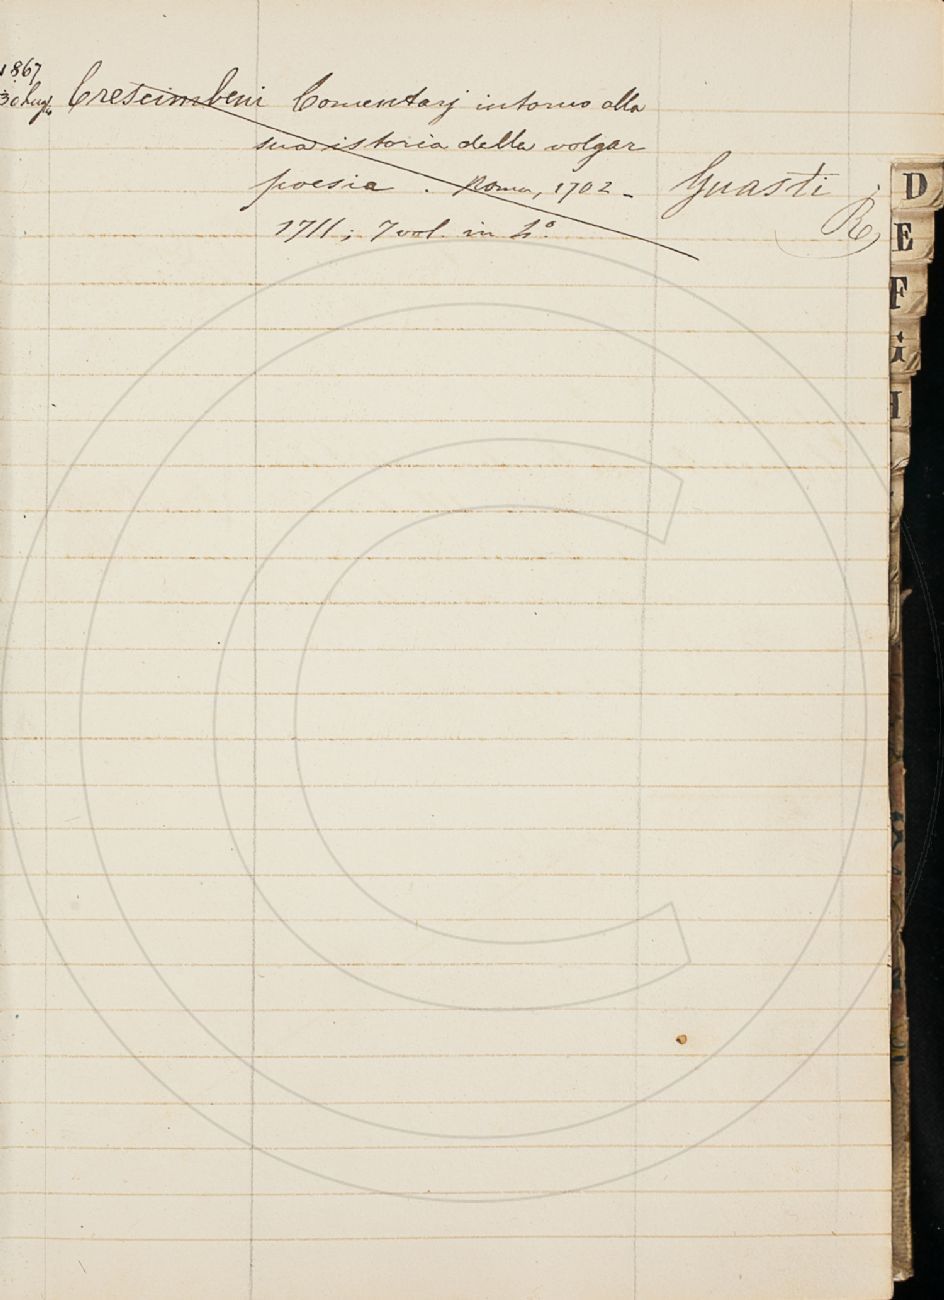 1867
30 Lugl. Crescimbeni Comentarj intorno alla
sua istoria della volgar
poesia. Roma, 1702 - Guasti
1711; 7 vol. in 4° R
D
E
F
G
H